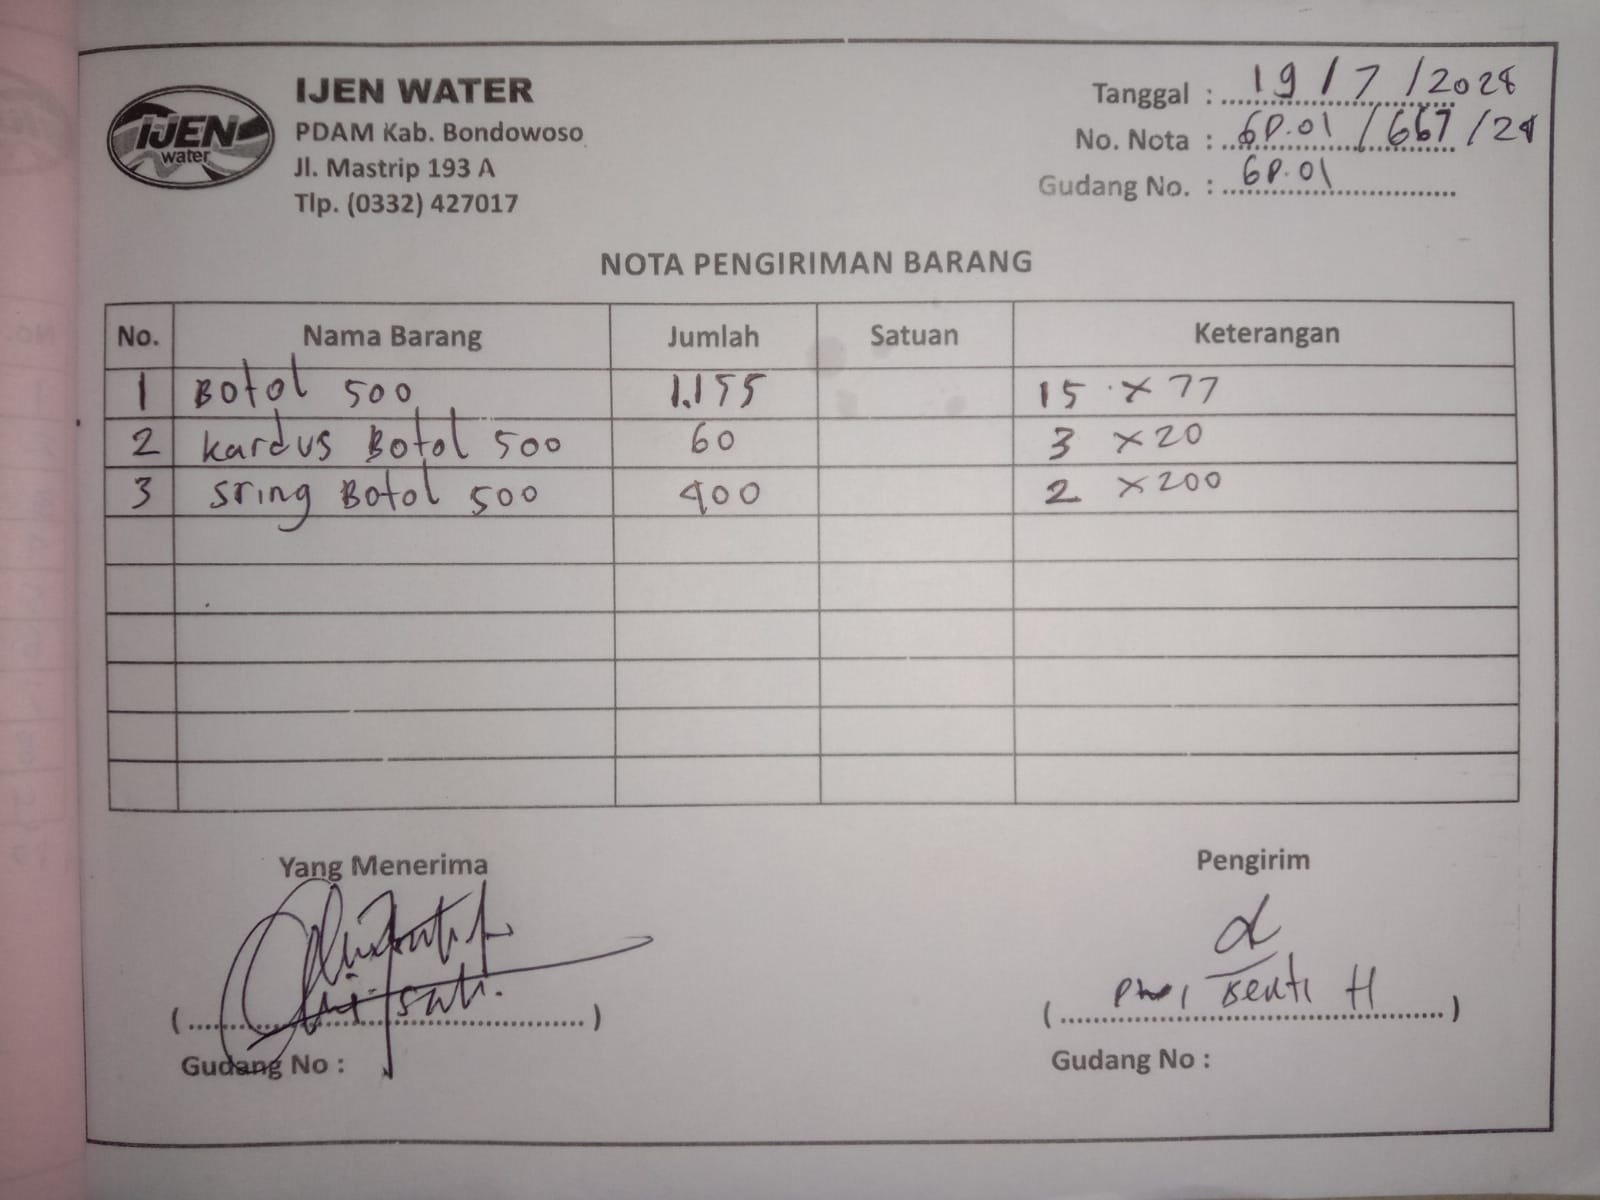 IJEN water
IJEN WATER
PDAM Kab. Bondowoso
Jl. Mastrip 193 A
Tlp. (0332) 427017
Tanggal : 19 / 7 / 2024
No. Nota : GP.01 / 667 / 24
Gudang No. : GP.01
NOTA PENGIRIMAN BARANG
No. Nama Barang Jumlah Satuan Keterangan
1 Botol 500 1.155 15 x 77
2 kardus Botol 500 60 3 x 20
3 sring Botol 500 400 2 x 200
Yang Menerima
Pengirim
( ) 
( H )
Gudang No :
Gudang No :